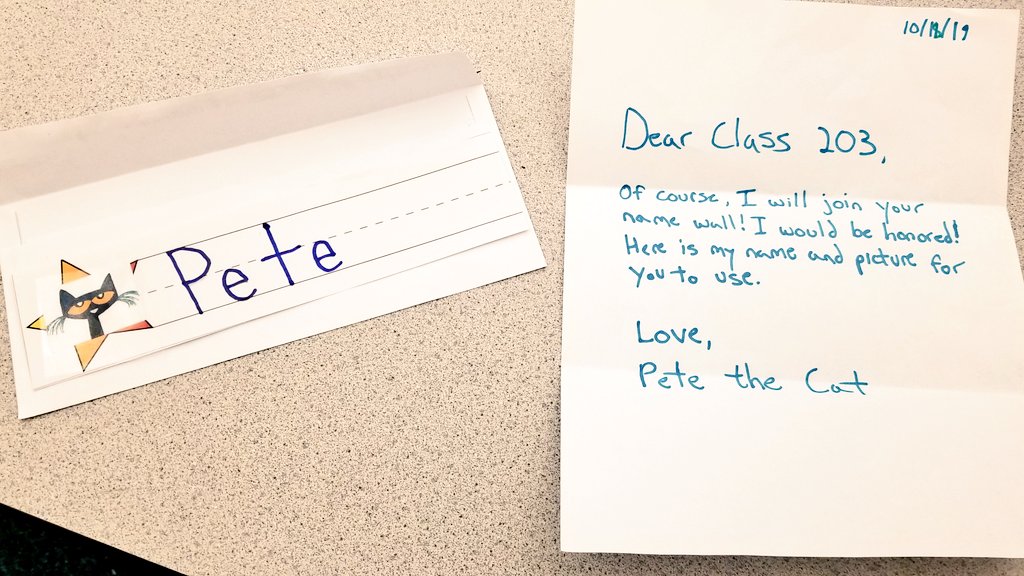 Pete
Dear Class 203,
Of course, I will join your
name wall! I would be honored!
Here is my name and picture for
you to use.
Love,
Pete the Cat